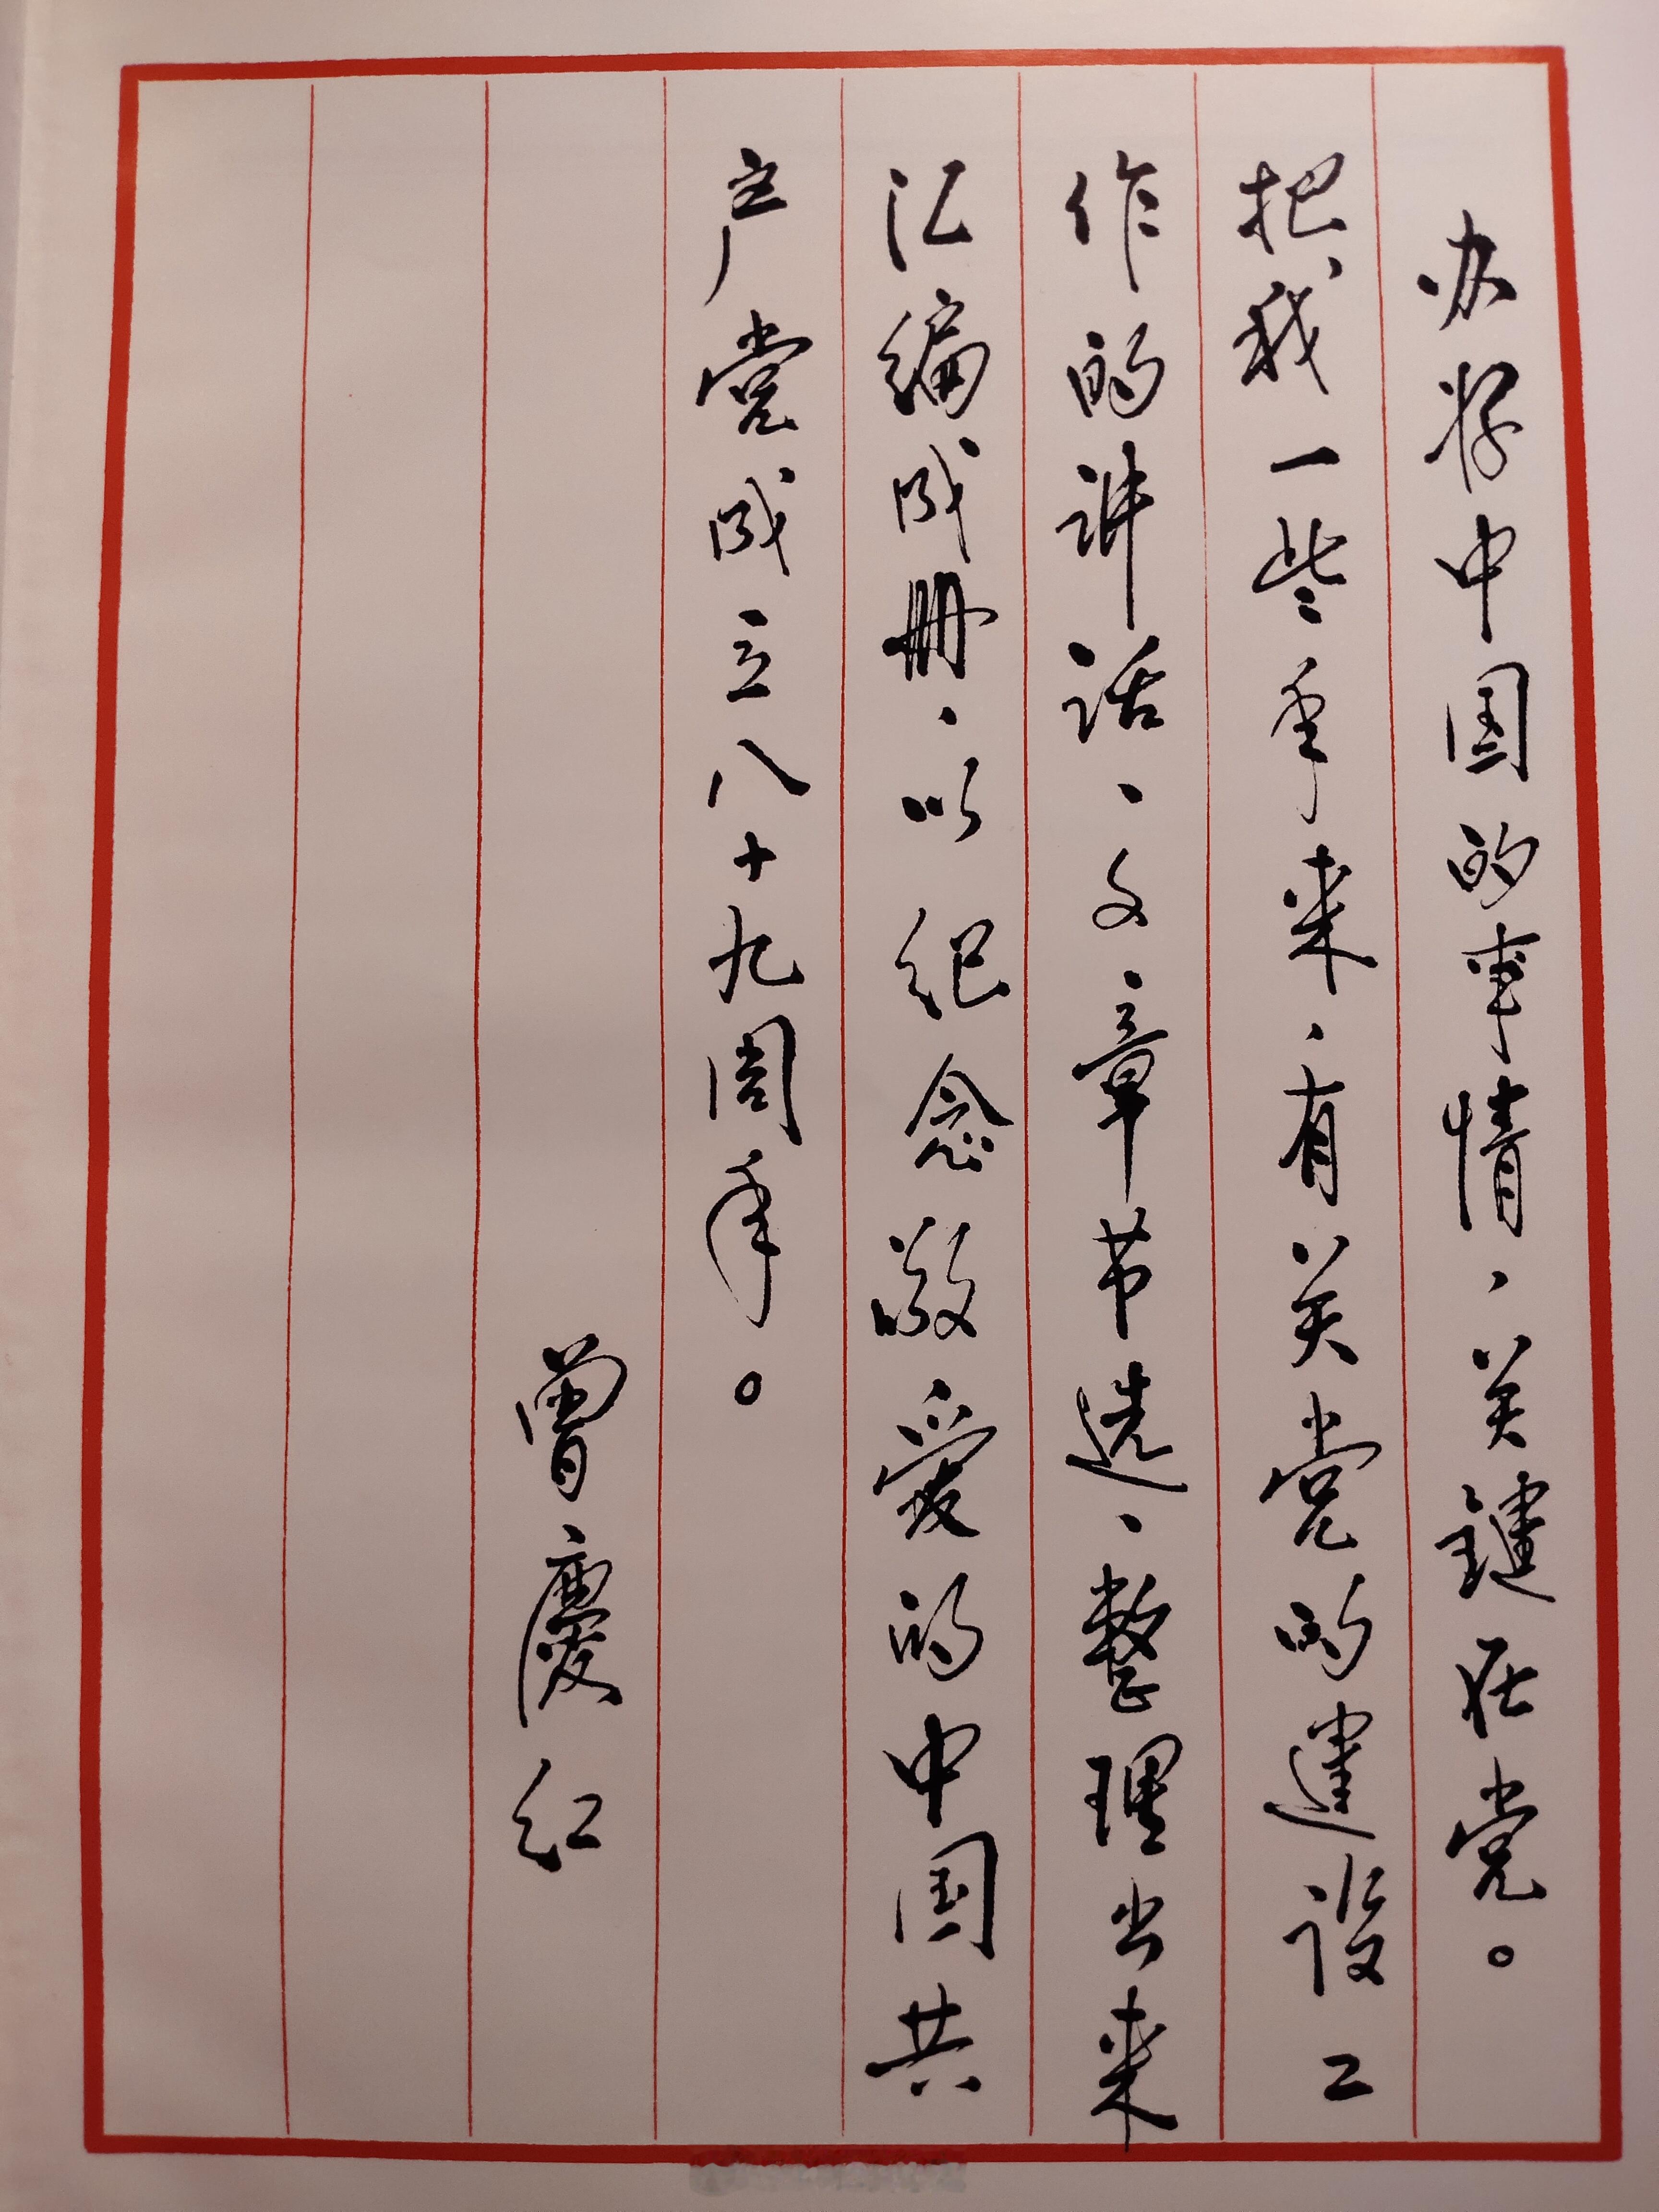 办好中国的事情，关键在党。
把我一些年来，有关党的建设工
作的讲话、文章节选、整理出来
汇编成册，以纪念敬爱的中国共
产党成立八十九周年。
曾慶红